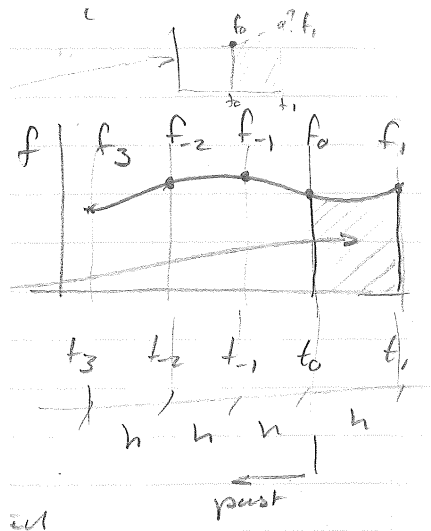 f₀ a? f₁
t₀ t₁
f f₃ f₋₂ f₋₁ f₀ f₁
t₃ t₋₂ t₋₁ t₀ t₁
h h h h
past